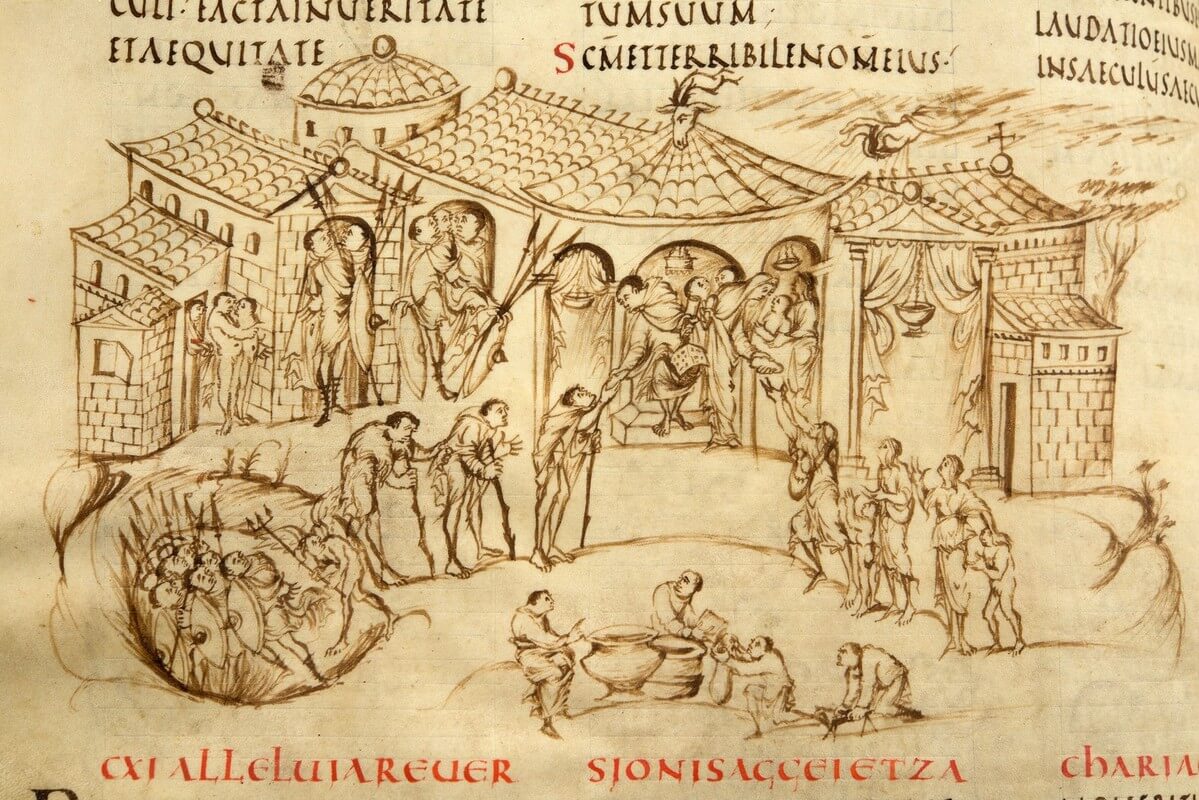 CULI· FACTAINUERITATE
ETAEQUITATE
TUMSUUM;
SCM̄ETTERRIBILENOM̄EIUS·
LAUDATIOEIUSM
INSAECULŪSAECU
CXI ALLELUIAREUER SIONISAGGEIETZA CHARIA